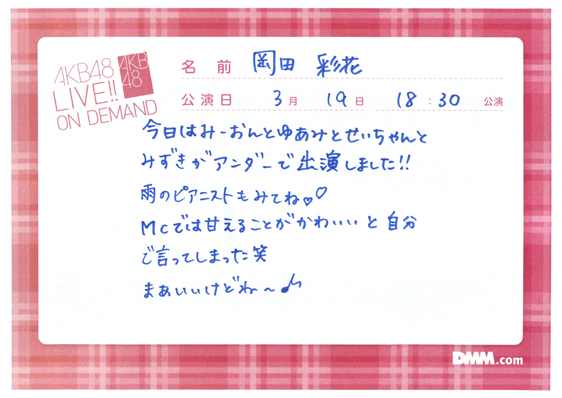 AKB48
LIVE!!
ON DEMAND
AKB
48
名 前 岡田 彩花
公演日 3月 19日 18:30 公演
今日はみーおんとゆあみとせいちゃんと
みずきがアンダーで出演しました!!
雨のピアニストもみてね♡♡
MCでは甘えることがかわいいと自分
で言ってしまった笑
まあいいけどね〜♪
DMM.com